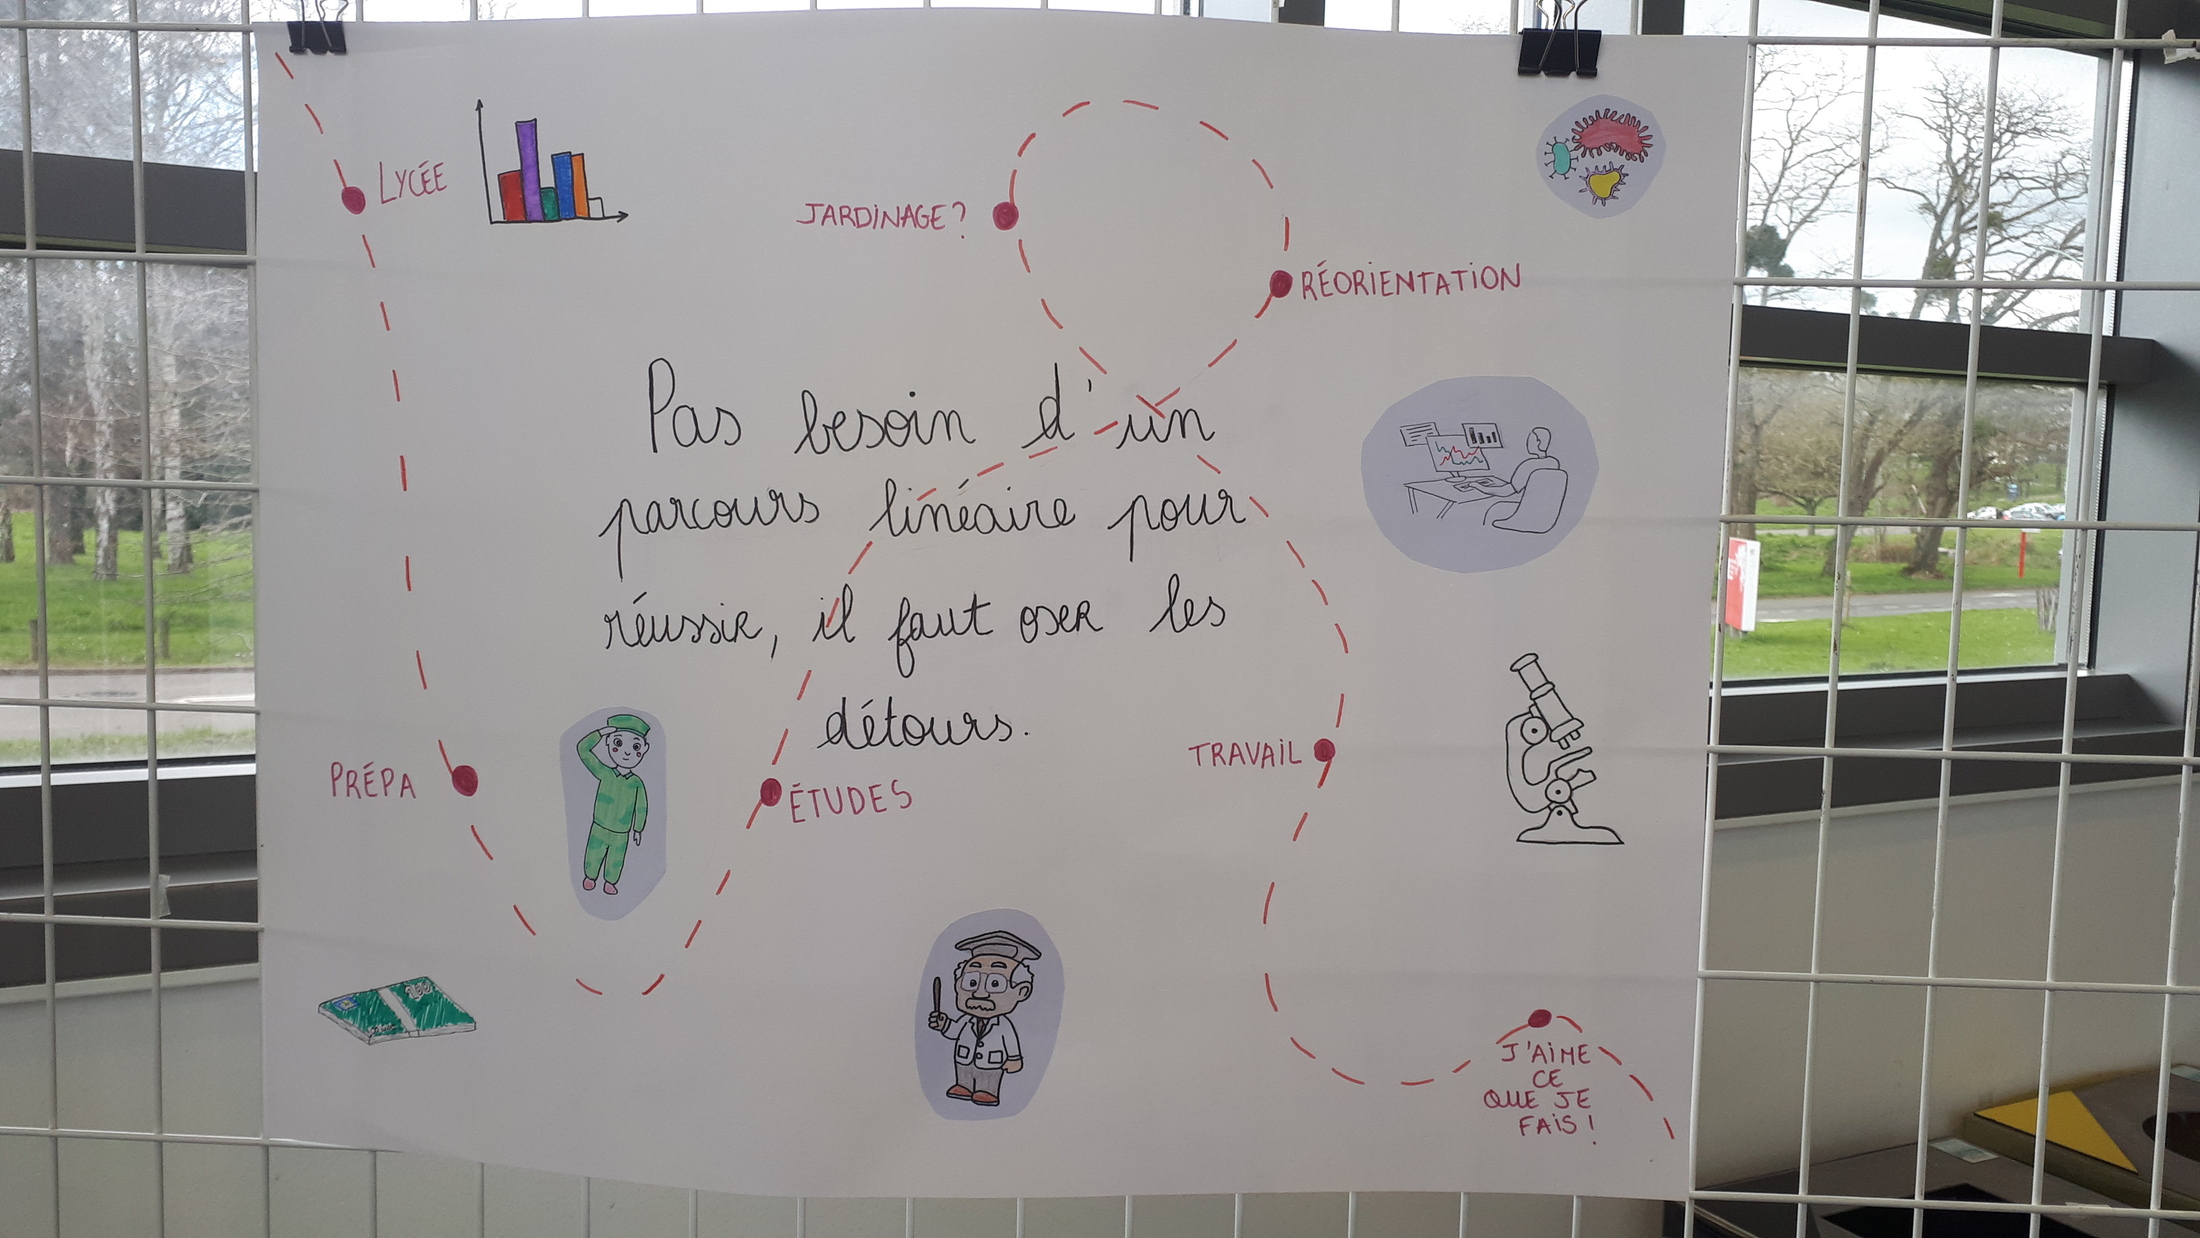 LYCÉE
JARDINAGE?
RÉORIENTATION
Pas besoin d'un
parcours linéaire pour
réussir, il faut oser les
détours.
PRÉPA
ÉTUDES
TRAVAIL
J'AIME
CE
QUE JE
FAIS!